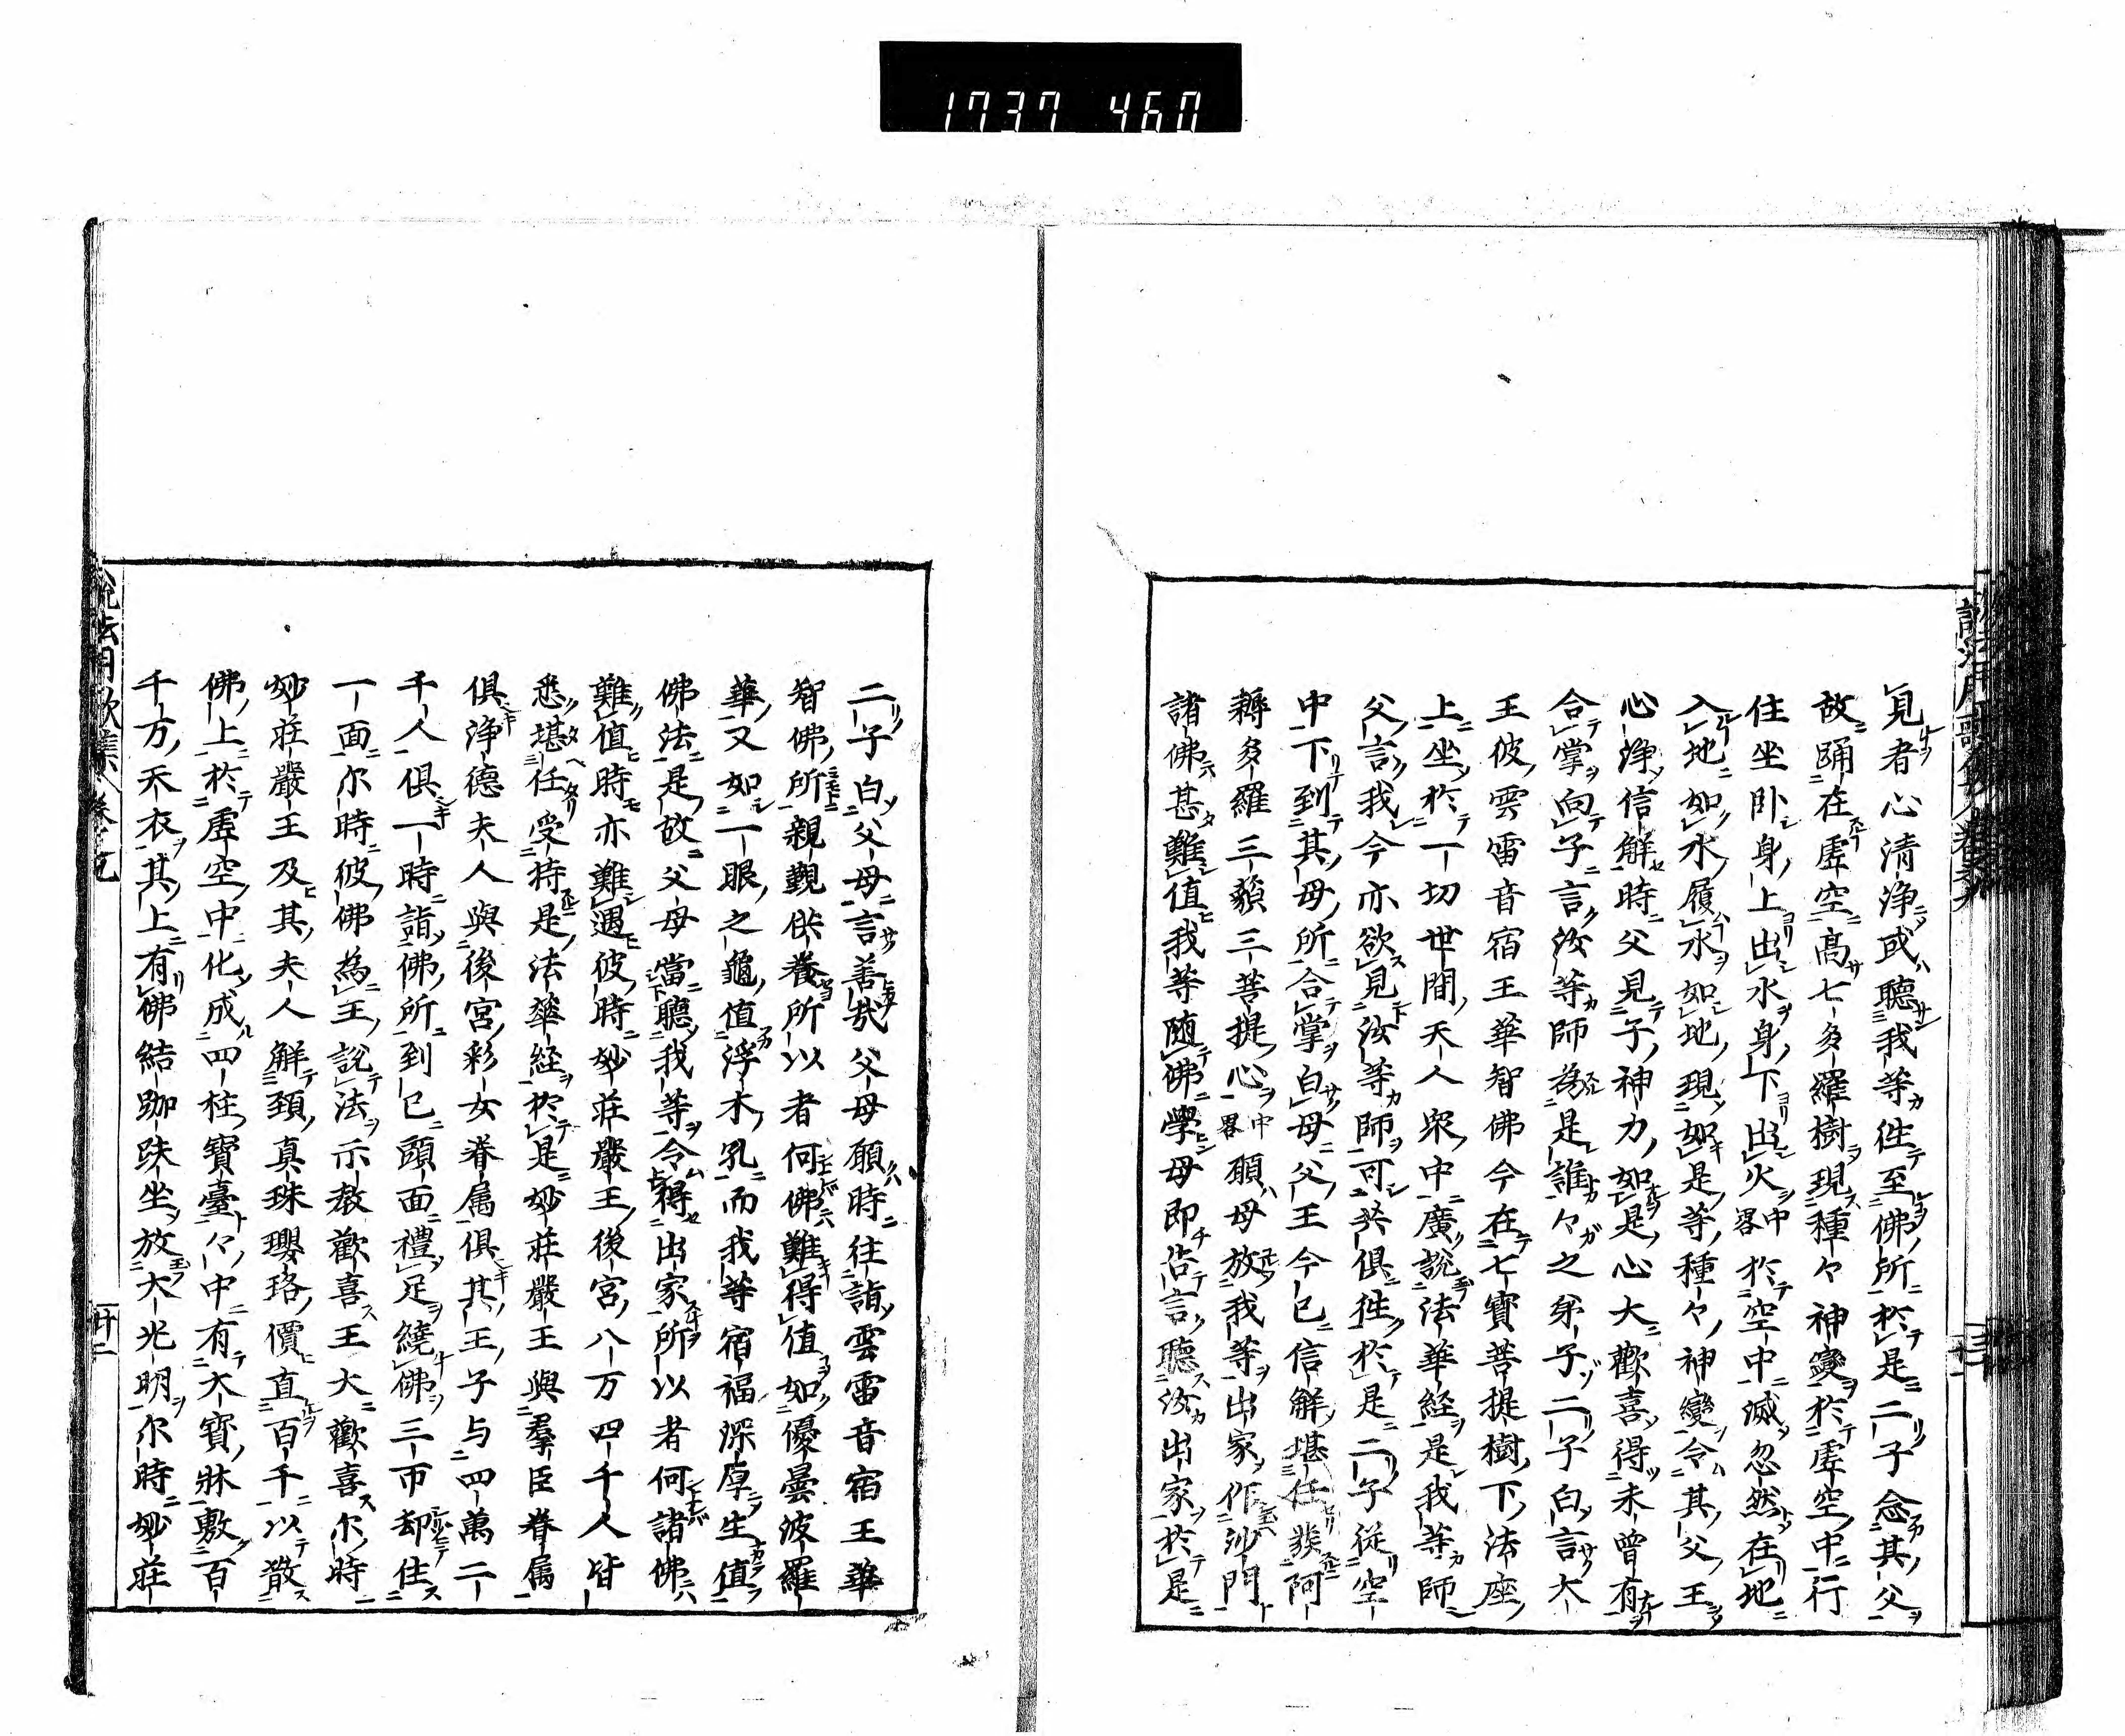 1737 460
見者心清浄或聴我等徃至佛所於是二子念其父
故踊在虚空高七多羅樹現種々神變於虚空中行
住坐卧身上出水身下出火中畧於空中滅忽然在地
入地如水履水如地現如是等種々神變令其父王
心浄信解時父見子神力如是心大歡喜得未曾有
合掌向子言汝等師為是誰々之弟子二子白言大
王彼雲雷音宿王華智佛今在七寳菩提樹下法座
上坐於一切世間天人衆中廣説法華経是我等師
父言我今亦欲見汝等師可共俱徃於是二子従空
中下到其母所合掌白母父王今已信解堪任發阿
耨多羅三藐三菩提心中畧願母放我等出家作沙門
諸佛甚難値我等随佛學母即告言聴汝出家於是
二子白父母言善哉父母願時往詣雲雷音宿王華
智佛所親覲供養所以者何佛難得値如優曇波羅
華又如一眼之龜値浮木孔而我等宿福深厚生値
佛法是故父母當聴我等令得出家所以者何諸佛
難値時亦難遇彼時妙荘嚴王後宮八万四千人皆
悉堪任受持是法華経於是妙荘嚴王與羣臣眷属
俱浄德夫人與後宮彩女眷属俱其王子与四萬二
千人俱一時詣佛所到已頭面禮足繞佛三帀却住
一面尓時彼佛為王説法示教歡喜王大歡喜尓時
妙荘嚴王及其夫人解頚真珠瓔珞價直百千以散
佛上於虚空中化成四柱寳臺々中有大寳牀敷百
千万天衣其上有佛結跏趺坐放大光明尓時妙荘
廿二